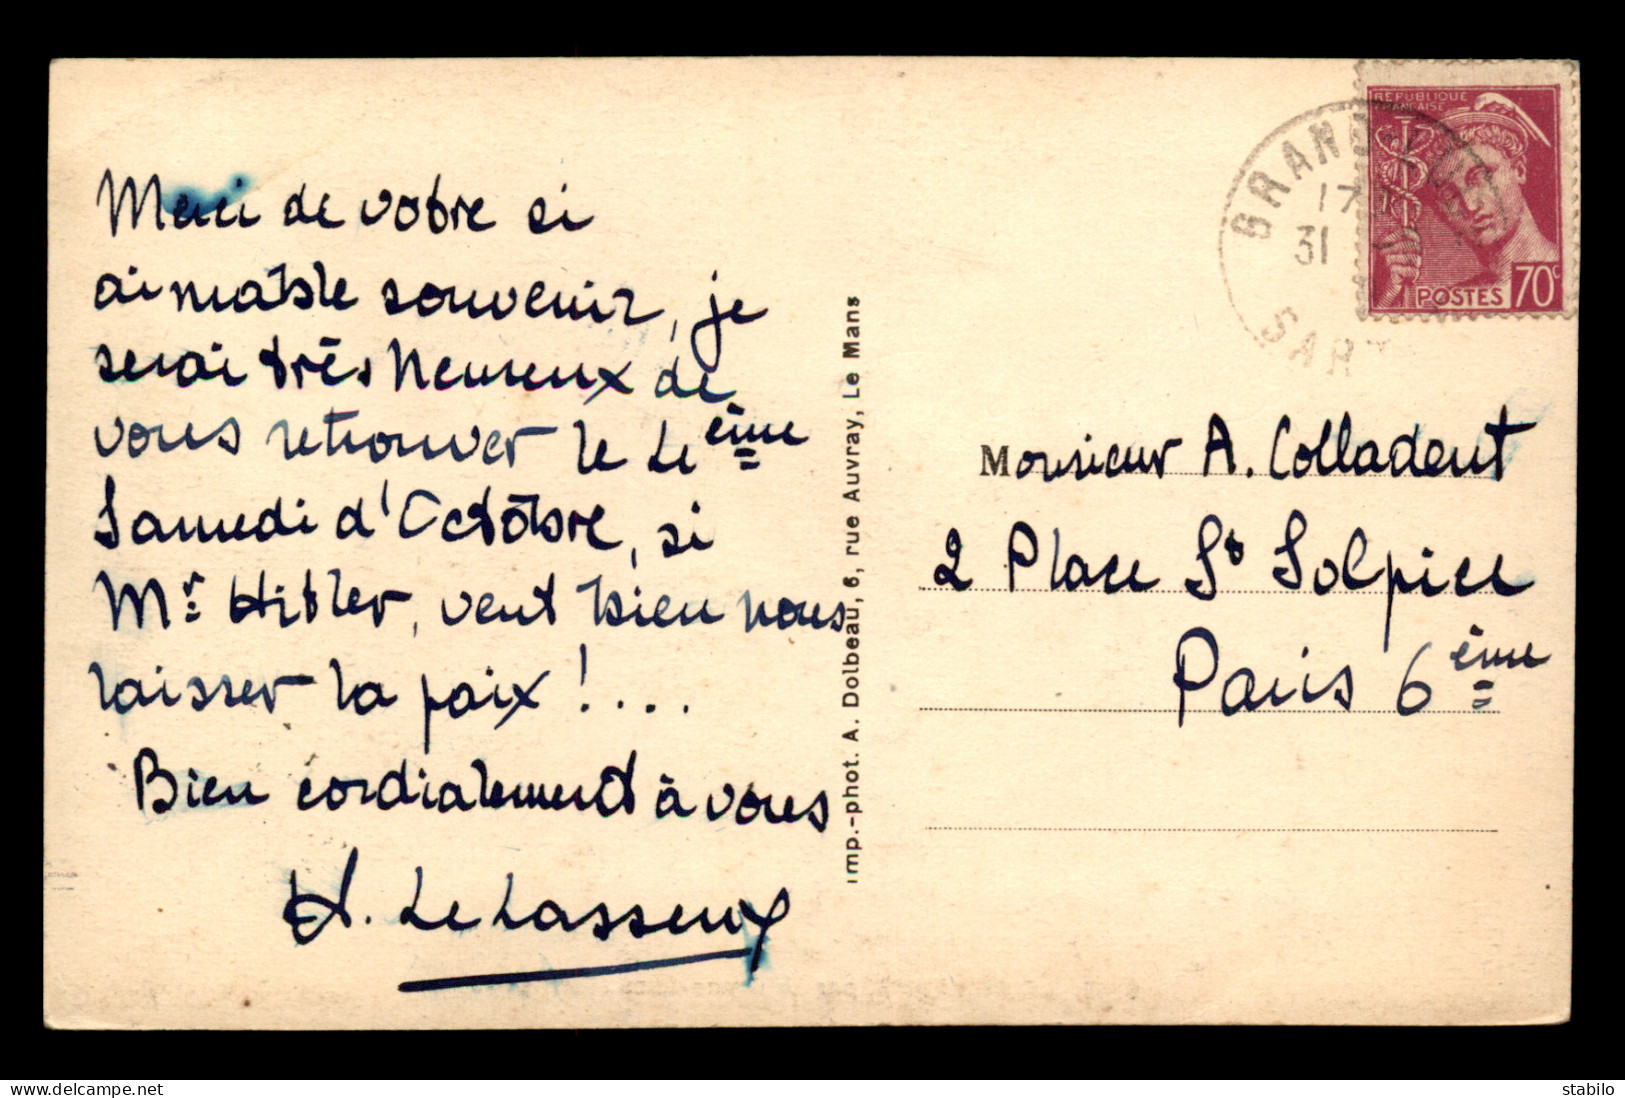 Merci de votre si
aimable souvenir, je
serai très heureux de
vous retrouver le 4ème
Samedi d'Octobre, si
Mr Hitler, veut bien nous
laisser la paix !....
Bien cordialement à vous
A. Le Lasseux
Imp.-phot. A. Dolbeau, 6, rue Auvray, Le Mans
REPUBLIQUE
FRANCAISE
POSTES 70c
GRAND-
17
31
SART
Monsieur A. Colladent
2 Place St Solpice
Paris 6ème
stabilo